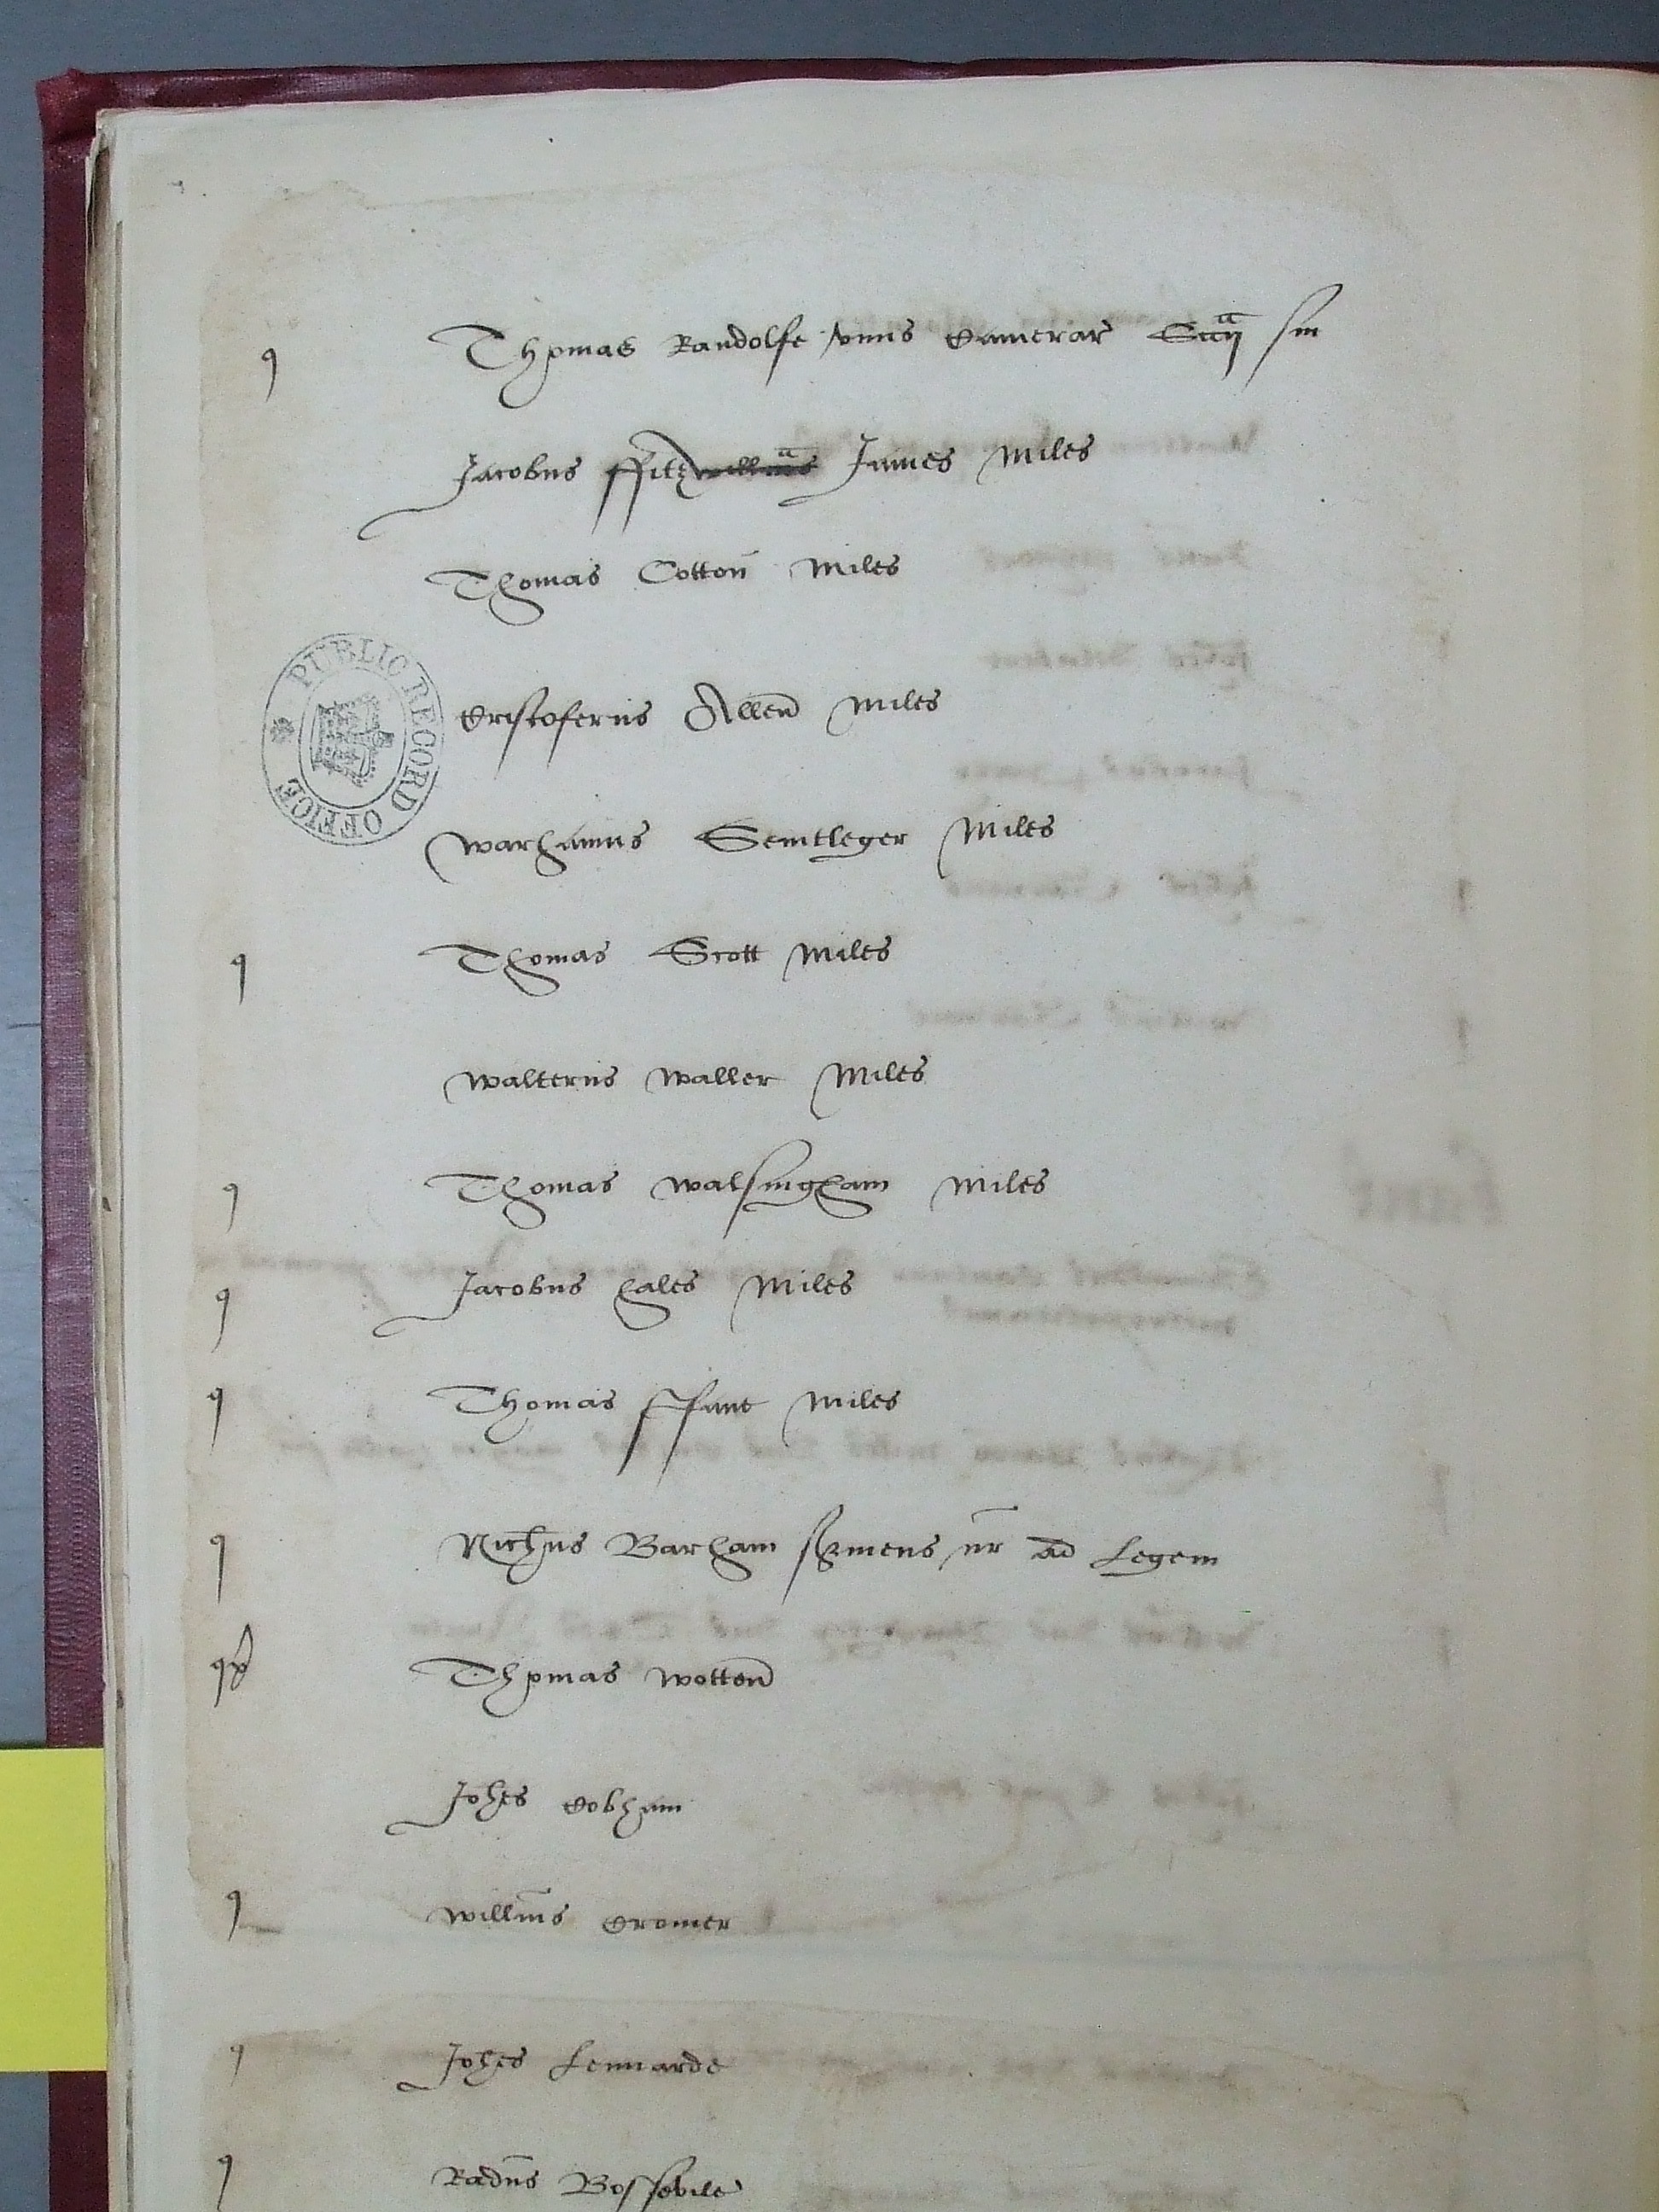 q Thomas Randolfe vnus Camerar Sccij sm
Jacobus ffitz willms James Miles
Thomas Cotton Miles
PUBLIC RECORD OFFICE
Cristoferus Allen Miles
Warhamus Sentleger Miles
q Thomas Scott Miles
Walterus Waller Miles
q Thomas Walsingham Miles
q Jacobus hales Miles
q Thomas ffane Miles
q Nichus Barham srviens nr ad Legem
q Thomas Wotton
Johes Cobham
q Willms Cromer
q Johes Lennarde
q Radus Bossevile